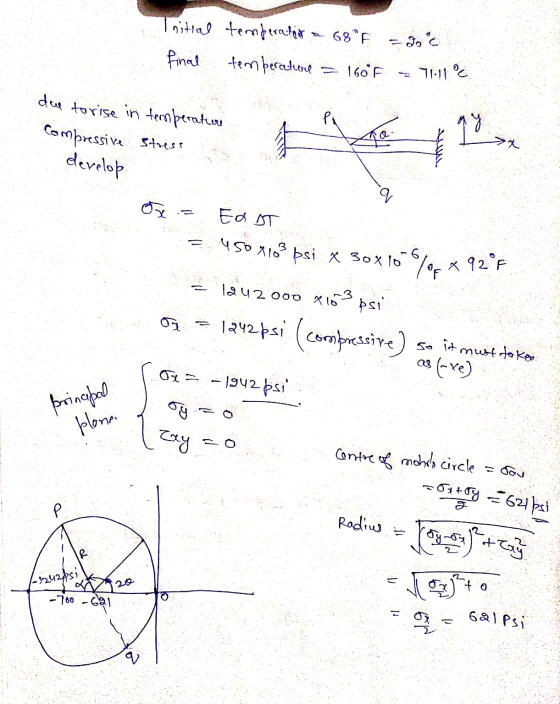 Initial temperature = 68°F = 20°C
final temperature = 160°F = 71.11 °C
due to rise in temperature
compressive stress
develop
P
θ
q
y
x
σx = Eα ΔT
= 450 x10³ psi x 30x10⁻⁶/°F x 92°F
= 1242000 x10⁻³ psi
σx = 1242psi (compressive) so it must taken
as (-ve)
principal
plane
σx = -1242psi
σy = 0
τxy = 0
Centre of mohr's circle = σav
= σx+σy/2 = -621psi
Radius = √(σy-σx/2)² + τxy²
= √(σx/2)² + 0
= σx/2 = 621 Psi
P
R
-1242psi
α
2θ
-700
-621
0
q